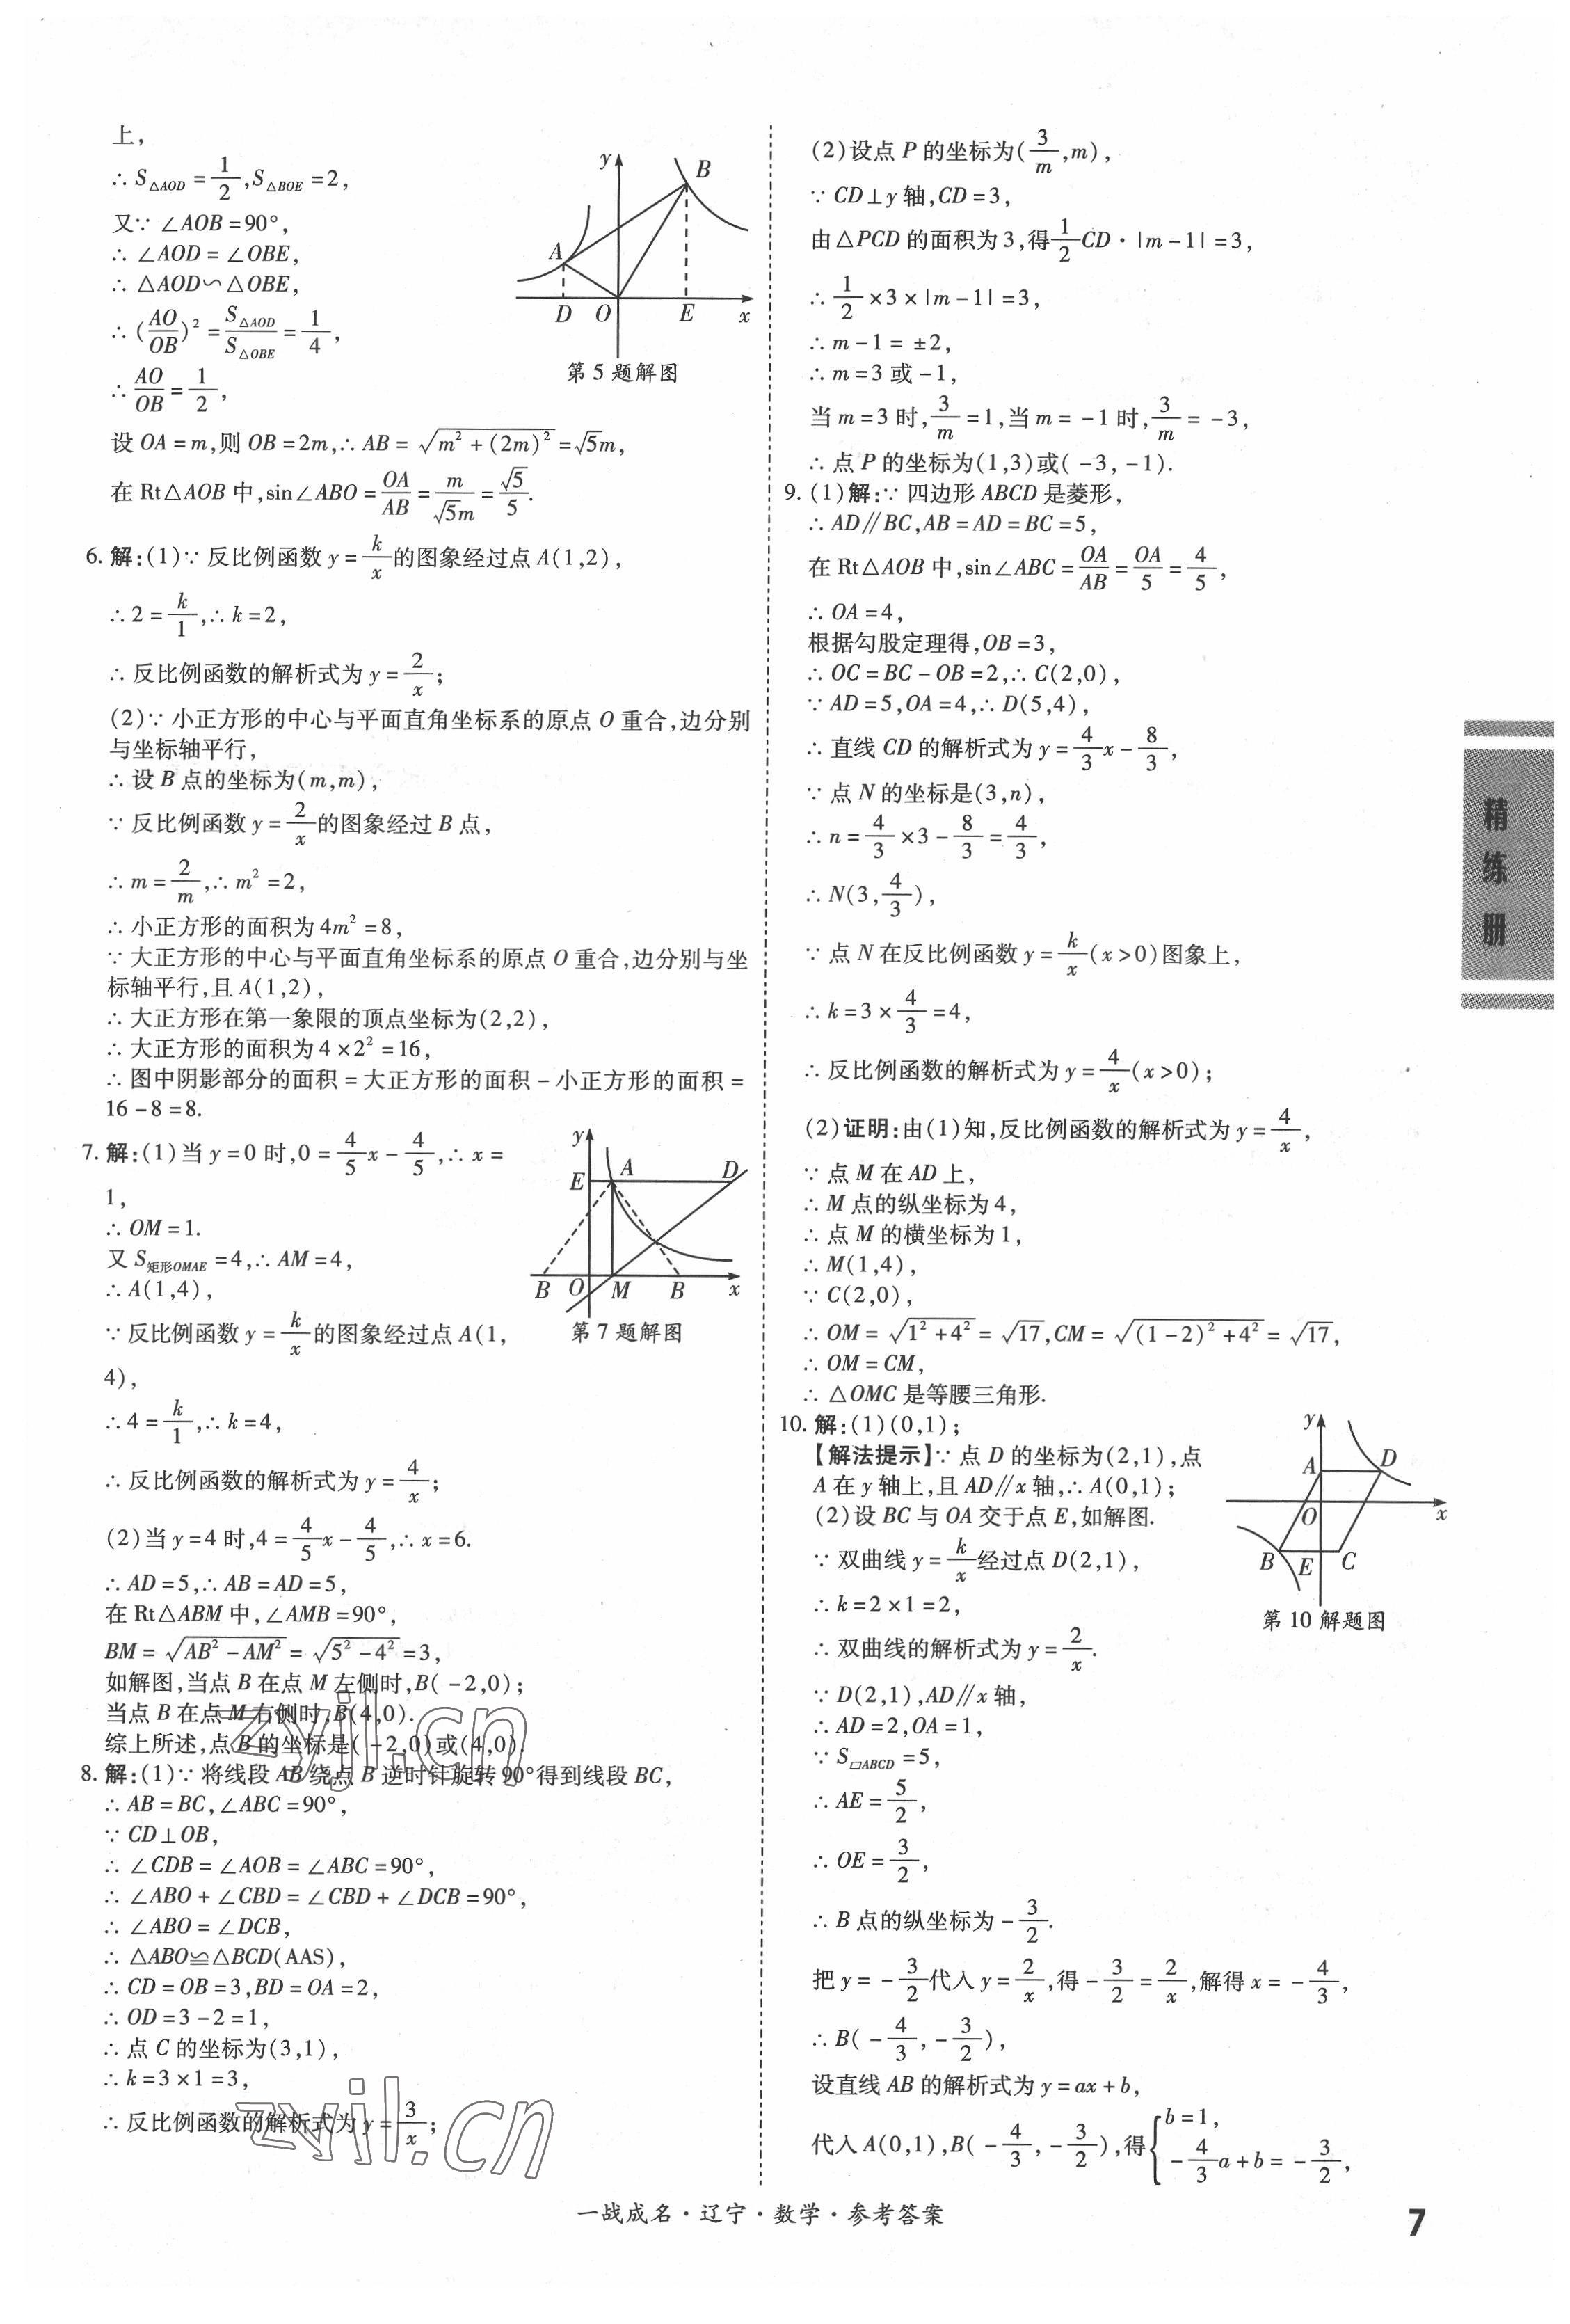 上，
∴ S△AOD = 1/2, S△BOE = 2，
又∵ ∠AOB = 90°，
∴ ∠AOD = ∠OBE，
∴ △AOD∽△OBE，
∴ (AO/OB)² = S△AOD/S△OBE = 1/4，
∴ AO/OB = 1/2，
y
B
A
D O E x
第 5 题解图
设 OA = m,则 OB = 2m,∴ AB = √(m² + (2m)²) = √5m，
在 Rt△AOB 中,sin∠ABO = OA/AB = m/√5m = √5/5.
6. 解:(1)∵ 反比例函数 y = k/x 的图象经过点 A(1,2)，
∴ 2 = k/1,∴ k = 2，
∴ 反比例函数的解析式为 y = 2/x；
(2)∵ 小正方形的中心与平面直角坐标系的原点 O 重合,边分别
与坐标轴平行，
∴ 设 B 点的坐标为(m,m)，
∵ 反比例函数 y = 2/x 的图象经过 B 点，
∴ m = 2/m,∴ m² = 2，
∴ 小正方形的面积为 4m² = 8，
∵ 大正方形的中心与平面直角坐标系的原点 O 重合,边分别与坐
标轴平行,且 A(1,2)，
∴ 大正方形在第一象限的顶点坐标为(2,2)，
∴ 大正方形的面积为 4 × 2² = 16，
∴ 图中阴影部分的面积 = 大正方形的面积 - 小正方形的面积 =
16 - 8 = 8.
7. 解:(1)当 y = 0 时,0 = 4/5x - 4/5,∴ x =
1，
∴ OM = 1.
又 S矩形OMAE = 4,∴ AM = 4，
∴ A(1,4)，
∵ 反比例函数 y = k/x 的图象经过点 A(1,
4)，
y
E A D
B O M B x
第 7 题解图
∴ 4 = k/1,∴ k = 4，
∴ 反比例函数的解析式为 y = 4/x；
(2)当 y = 4 时,4 = 4/5x - 4/5,∴ x = 6.
∴ AD = 5,∴ AB = AD = 5，
在 Rt△ABM 中,∠AMB = 90°，
BM = √(AB² - AM²) = √(5² - 4²) = 3，
如解图,当点 B 在点 M 左侧时,B( -2,0)；
当点 B 在点 M 右侧时,B(4,0).
综上所述,点 B 的坐标是( -2,0)或(4,0).
8. 解:(1)∵ 将线段 AB 绕点 B 逆时针旋转 90°得到线段 BC，
∴ AB = BC,∠ABC = 90°，
∵ CD⊥OB，
∴ ∠CDB = ∠AOB = ∠ABC = 90°，
∴ ∠ABO + ∠CBD = ∠CBD + ∠DCB = 90°，
∴ ∠ABO = ∠DCB，
∴ △ABO≌△BCD(AAS)，
∴ CD = OB = 3,BD = OA = 2，
∴ OD = 3 - 2 = 1，
∴ 点 C 的坐标为(3,1)，
∴ k = 3 × 1 = 3，
∴ 反比例函数的解析式为 y = 3/x；
zyjl.cn
zyjl.cn
(2)设点 P 的坐标为(3/m,m)，
∵ CD⊥y 轴,CD = 3，
由△PCD 的面积为 3,得 1/2CD·|m - 1| = 3，
∴ 1/2 × 3 × |m - 1| = 3，
∴ m - 1 = ±2，
∴ m = 3 或 -1，
当 m = 3 时,3/m = 1,当 m = -1 时,3/m = -3，
∴ 点 P 的坐标为(1,3)或( -3, -1).
9. (1)解:∵ 四边形 ABCD 是菱形，
∴ AD∥BC,AB = AD = BC = 5，
在 Rt△AOB 中,sin∠ABC = OA/AB = OA/5 = 4/5，
∴ OA = 4，
根据勾股定理得,OB = 3，
∴ OC = BC - OB = 2,∴ C(2,0)，
∵ AD = 5,OA = 4,∴ D(5,4)，
∴ 直线 CD 的解析式为 y = 4/3x - 8/3，
∵ 点 N 的坐标是(3,n)，
∴ n = 4/3 × 3 - 8/3 = 4/3，
∴ N(3,4/3)，
∵ 点 N 在反比例函数 y = k/x(x > 0)图象上，
∴ k = 3 × 4/3 = 4，
∴ 反比例函数的解析式为 y = 4/x(x > 0)；
(2)证明:由(1)知,反比例函数的解析式为 y = 4/x，
∵ 点 M 在 AD 上，
∴ M 点的纵坐标为 4，
∴ 点 M 的横坐标为 1，
∴ M(1,4)，
∵ C(2,0)，
∴ OM = √(1² + 4²) = √17,CM = √((1 - 2)² + 4²) = √17，
∴ OM = CM，
∴ △OMC 是等腰三角形.
10. 解:(1)(0,1)；
【解法提示】∵ 点 D 的坐标为(2,1),点
A 在 y 轴上,且 AD∥x 轴,∴ A(0,1)；
(2)设 BC 与 OA 交于点 E,如解图.
∵ 双曲线 y = k/x 经过点 D(2,1)，
∴ k = 2 × 1 = 2，
∴ 双曲线的解析式为 y = 2/x.
y
A D
O x
B E C
第 10 解题图
∵ D(2,1),AD∥x 轴，
∴ AD = 2,OA = 1，
∵ S▱ABCD = 5，
∴ AE = 5/2，
∴ OE = 3/2，
∴ B 点的纵坐标为 - 3/2.
把 y = - 3/2 代入 y = 2/x,得 - 3/2 = 2/x,解得 x = - 4/3，
∴ B( - 4/3, - 3/2)，
设直线 AB 的解析式为 y = ax + b，
代入 A(0,1),B( - 4/3, - 3/2),得{b = 1，
- 4/3a + b = - 3/2，
精练册
一战成名·辽宁·数学·参考答案
7